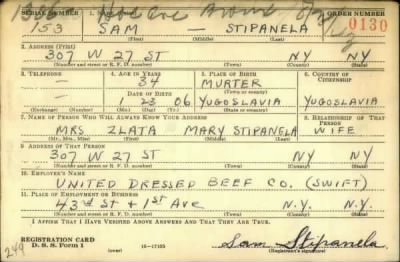 SERIAL NUMBER 1. NAME (Print) ORDER NUMBER
153 SAM — STIPANELA 0130
(First) (Middle) (Last)
2. ADDRESS (Print)
307 W 27 ST NY NY
(Number and street or R. F. D. number) (Town) (County) (State)
3. TELEPHONE 4. AGE IN YEARS 5. PLACE OF BIRTH 6. COUNTRY OF CITIZENSHIP
— 34 MURTER
DATE OF BIRTH (Town or county)
1 23 06 YUGOSLAVIA YUGOSLAVIA
(Exchange) (Number) (Mo.) (Day) (Yr.) (State or country)
7. NAME OF PERSON WHO WILL ALWAYS KNOW YOUR ADDRESS 8. RELATIONSHIP OF THAT PERSON
MRS ZLATA MARY STIPANELA WIFE
(Mr., Mrs., Miss) (First) (Middle) (Last)
9. ADDRESS OF THAT PERSON
307 W 27 ST NY NY
(Number and street or R. F. D. number) (Town) (County) (State)
10. EMPLOYER'S NAME
UNITED DRESSED BEEF CO. (SWIFT)
11. PLACE OF EMPLOYMENT OR BUSINESS
43rd ST + 1st AVE N.Y. N.Y.
(Number and street or R. F. D. number) (Town) (County) (State)
I AFFIRM THAT I HAVE VERIFIED ABOVE ANSWERS AND THAT THEY ARE TRUE.
REGISTRATION CARD
D. S. S. FORM 1 (over) 16—17105 Sam Stipanela
(Registrant's signature)
249